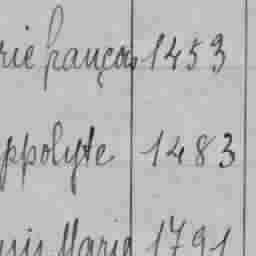 rie françois 1453
ppolyte 1483
uis Maria 1791